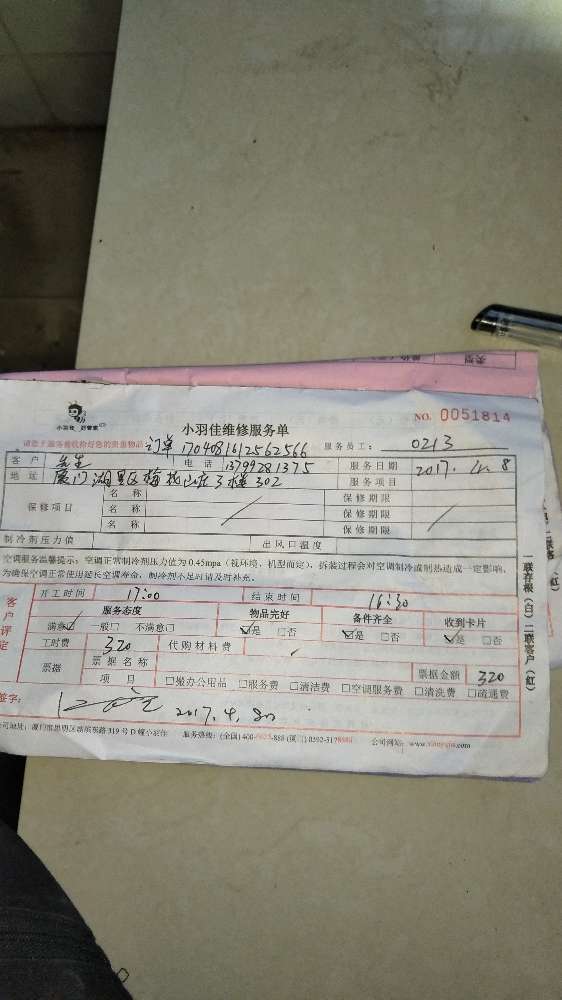 小羽佳维修服务单
NO. 0051814
小羽佳 好管家
请您于服务前收拾好您的贵重物品
订单 170408161256 2566 服务员工： 0213
客户 先生 电话 13799281375 服务日期 2017. 4. 8
地址 厦门湖里区 3楼302 服务项目
保修项目 名称 保修期限
名称 保修期限
名称 保修期限
制冷剂压力值 出风口温度
空调服务温馨提示：空调正常制冷剂压力值为0.45mpa（视环境、机型而定），拆装过程会对空调制冷或制热造成一定影响，
为确保空调正常使用延长空调寿命，制冷剂不足时请及时补充。
客户评定
开工时间 17:00 结束时间 16:30
服务态度 物品完好 备件齐全 收到卡片
满意☑ 一般□ 不满意□ ☑是 □否 ☑是 □否 ☑是 □否
工时费 320 代购材料费
票据 票据名称 票据金额 320
项目 □搬办公用品 □服务费 □清洁费 □空调服务费 □清洗费 □疏通费
签字： 2017. 4. 8
319号D幢 服务热线：(全国)400- -888 (厦门)0592-5178 公司网站：www.
一联存根（白）二联客户（红）